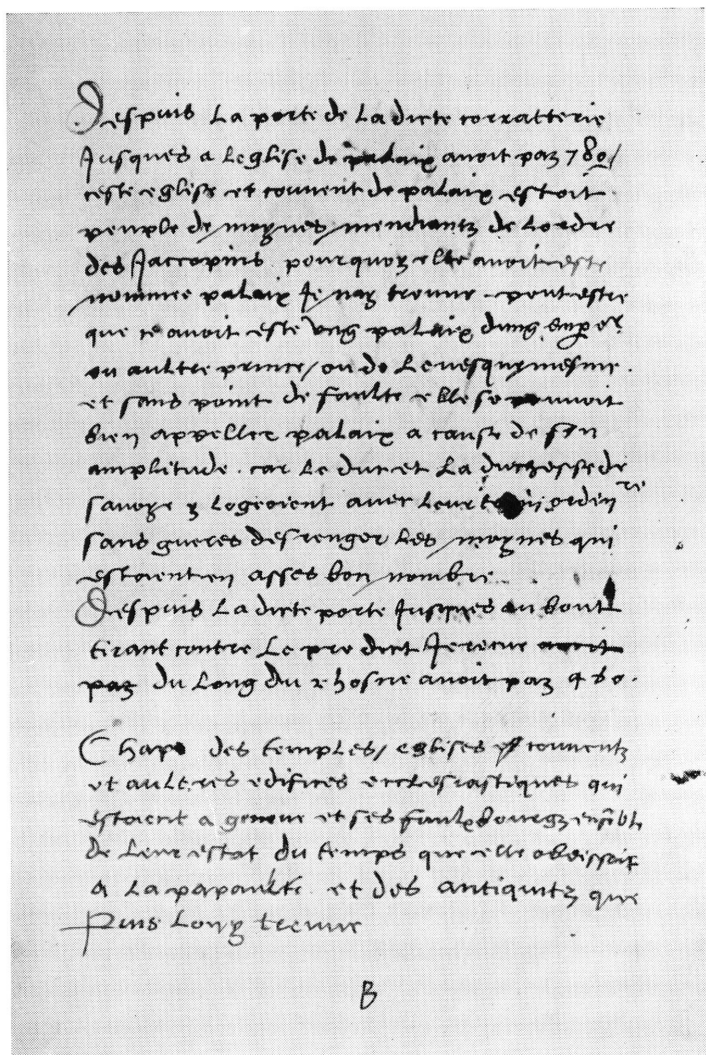 Despuis La porte de La dicte corratterie
Jusques a Leglise de palaix avoit paz 780/
ceste eglise et couvent de palaix estoit
peuple de moynes mendiantz de Lordre
des Jaccopins pourquoy elle avoit este
nommee palaix Je nay trouve . peut estre
que ce avoit este ung palaix dung emper
ou aultre prince / ou de Levesque mesme .
et sans point de faulte elle se pouvoit
bien appeller palaix a cause de son
amplitude . car Le duc et La duchesse de
savoye y Logeoient avec Leur ordinre
sans gueres desrenger Les moynes qui
estoient en asses bon nombre .
Despuis La dicte porte Jusques au bout
tirant contre Le pre dict
paz du Long du rhosne avoit paz 480 .
Chap des temples / eglises et couventz
et aultres edifices ecclesiastiques qui
estoient a geneve et ses faulxbourgz ensebl
de Leur estat du temps que elle obeissoit
a La papaulte . et des antiquitz que
Puis Lon y treuve
B